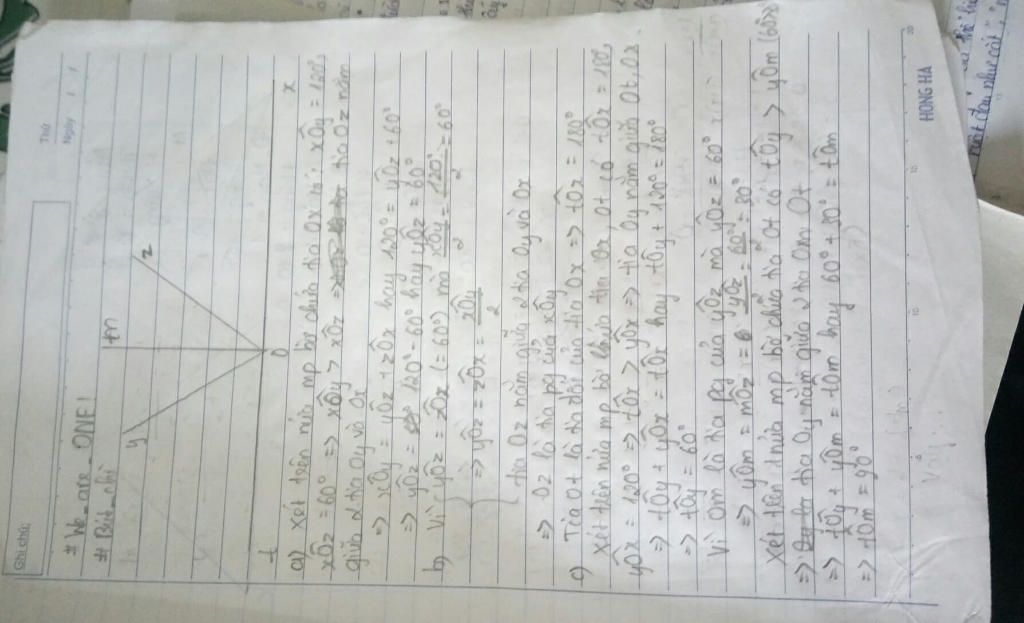 Ghi chú:
Thứ
Ngày
# We_are_ONE!
# Bút_chì
y
m
z
t
O
x
a) Xét trên nửa mp bờ chứa tia Ox có: xÔy = 120°,
xÔz = 60° => xÔy > xÔz => tia Oz nằm
giữa 2 tia Oy và Ox
=> xÔy = yÔz + zÔx hay 120° = yÔz + 60°
=> yÔz = 120° - 60° hay yÔz = 60°
b) Vì yÔz = zÔx (= 60°) mà xÔy/2 = 120°/2 = 60°
=> yÔz = zÔx = xÔy/2
tia Oz nằm giữa 2 tia Oy và Ox
=> Oz là tia pg của xÔy
c) Tia Ot là tia đối của tia Ox => tÔx = 180°
Xét trên nửa mp bờ chứa tia Ox, Ot có tÔx = 180°,
yÔx = 120° => tÔx > yÔx => tia Oy nằm giữa Ot, Ox.
=> tÔy + yÔx = tÔx hay tÔy + 120° = 180°
=> tÔy = 60°
Vì Om là tia pg của yÔz mà yÔz = 60°
=> yÔm = mÔz = yÔz/2 = 60°/2 = 30°
Xét trên 1 nửa mp bờ chứa tia Ot có tÔy > yÔm (60°>30°)
=> tia Oy nằm giữa 2 tia Om, Ot
=> tÔy + yÔm = tÔm hay 60° + 30° = tÔm
=> tÔm = 90°
HONG HA